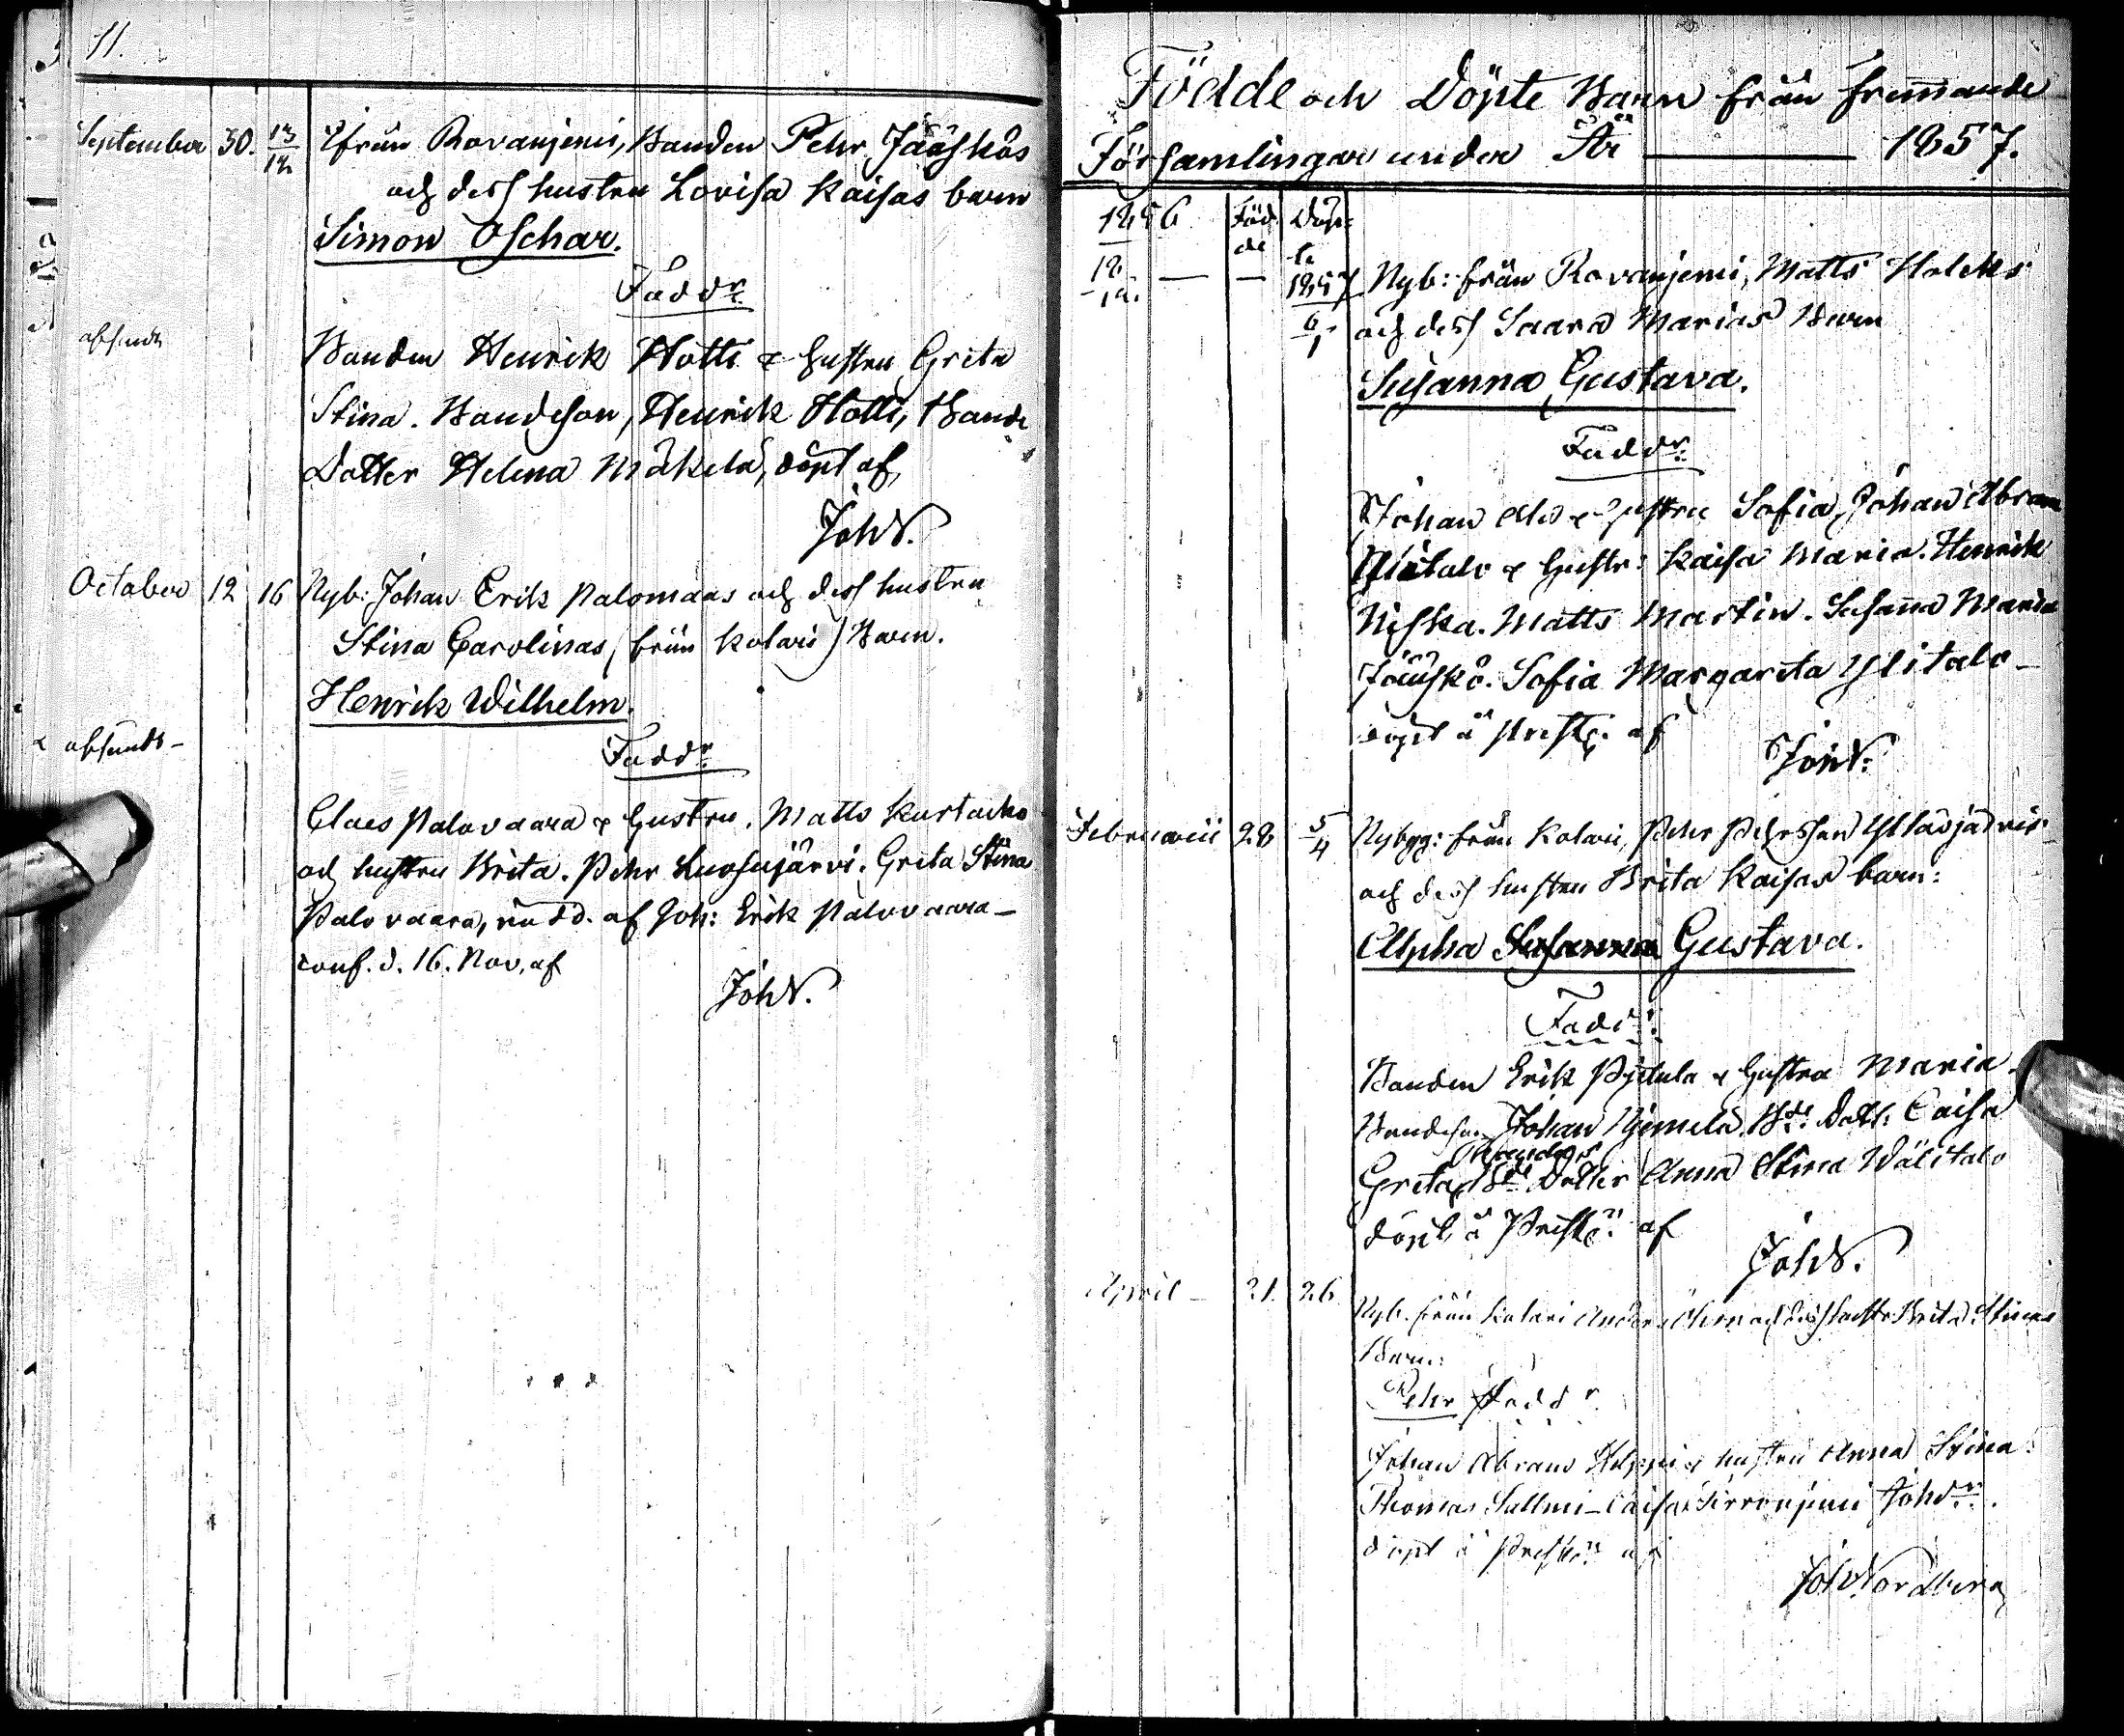 11.
September 30. 13/12 ifrån Rovanjemi, Bonden Pehr Jääskös
och dess hustru Lovisa Kaisas barn
Simon Oschar.
Faddr:
afsändt
Bonden Henrik Hotti & hustru Greta
Stina. Bondeson, Henrik Hotti, Bonde
Dotter Helena Mäkelä, döpt af,
JohN.
October 12 16 Nyb: Johan Erik Palomaas och dess hustru
Stina Carolinas, (från Kolari) Barn.
Henrik Wilhelm.
afsändt -
Faddr:
Claes Palovaara & hustru. Matts Kurtacko
och hustru Brita. Pehr Luosujärvi. Greta Stina
Palovaara, nödd. af Joh: Erik Palovaara -
conf. d. 16. Nov. af
JohN.
Födde och Döpte Barn från främmande
Församlingar under År — 1857.
1856 Föd de Döp: te
18/12. — — 1857 6/1 Nyb: från Rovanjemi, Matts Holcks
och dess Saara Marias Barn
Susanna Gustava.
Faddr:
Johan & hustru Sofia, Johan Abram
Ylitalo & hustr: Kaisa Maria. Henrik
Niska. Matts Martin. Susanna Maria
Jääskö. Sofia Margareta Ylitalo -
döpt å Prestg: af
JohN:
Februarii 28 5/4 Nybyg: från Kolari, Pehr Pehrsson Ylläsjärvis
och dess hustru Brita Kaisas barn:
Alpha Susanna Gustava.
Fadr:
Bonden Erik Pyttula & hustru Maria.
Bondeson Johan Njemelä. Bde: Dott. Caisa
Greta, Bde Dotter Anna Stina Välitalo
döpt å Prestg: af
JohN.
April - 21. 26 Nyb. från Kolari Anders och dess hustr Brita Stinas
Barn:
Pehr Faddr.
Johan Abram & hustru Anna Stina.
Thomas Sallmi - Caisa
döpt å Prestg: af
Joh Nordberg